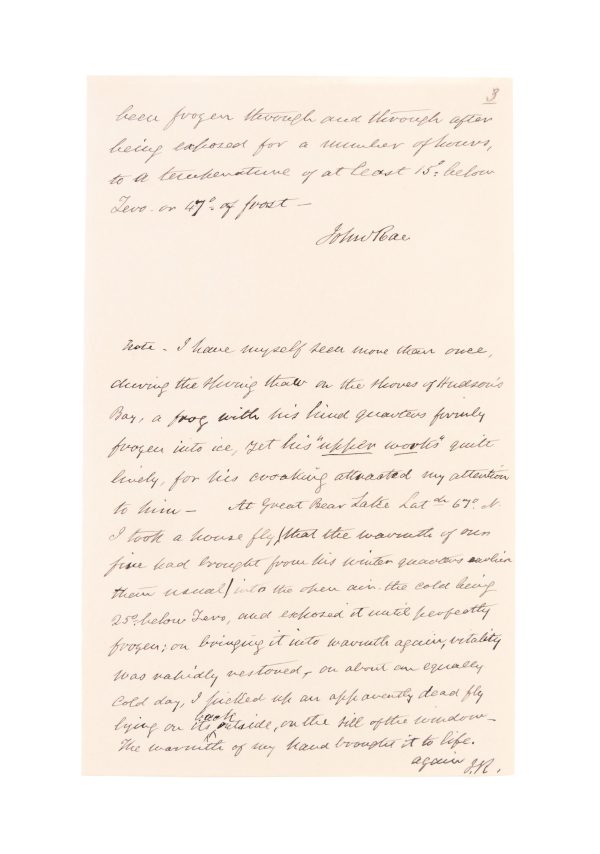 3
been frozen through and through after
being exposed for a number of hours,
to a temperature of at least 15° below
Zero. or 47° of frost —
John Rae
Note - I have myself seen more than once,
during the spring thaw on the shores of Hudson's
Bay, a frog with his hind quarters firmly
frozen into ice, yet his "upper works" quite
lively, for his croaking attracted my attention
to him — At Great Bear Lake Latde 67° N.
I took a house fly (that the warmth of our
fire had brought from his winter quarters earlier
than usual) into the open air. the cold being
25° below Zero, and exposed it until perfectly
frozen; on bringing it into warmth again, vitality
was rapidly restored, on about an equally
cold day, I picked up an apparently dead fly
lying on its back outside, on the sill of the window —
The warmth of my hand brought it to life.
again J.R.